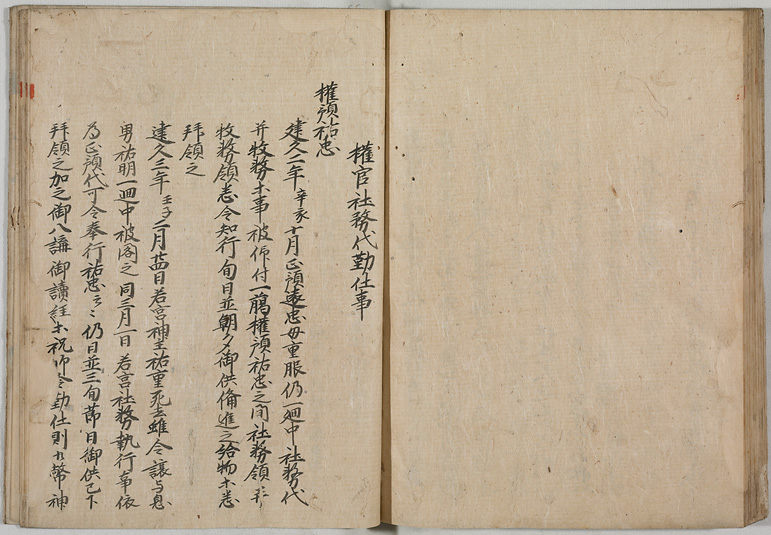 權官社務代勤仕事
權預祐忠
建久二年辛亥十月正預遠忠母重服仍一廻中社務代
并牧務ホ事被仰付一﨟權預祐忠之間社務領并
牧務領悉令知行旬日並朝夕御供備進之給物ホ悉
拜領之
建久三年壬子二月 日若宮神主祐重死去雖令讓与息
男祐明一廻中被閣之同三月一日若宮社務執行事依
為正預代可令奉行祐忠云々仍日並三旬節日御供已下
拜領之加之御八講御讀經ホ祝師令勤仕則 幣神